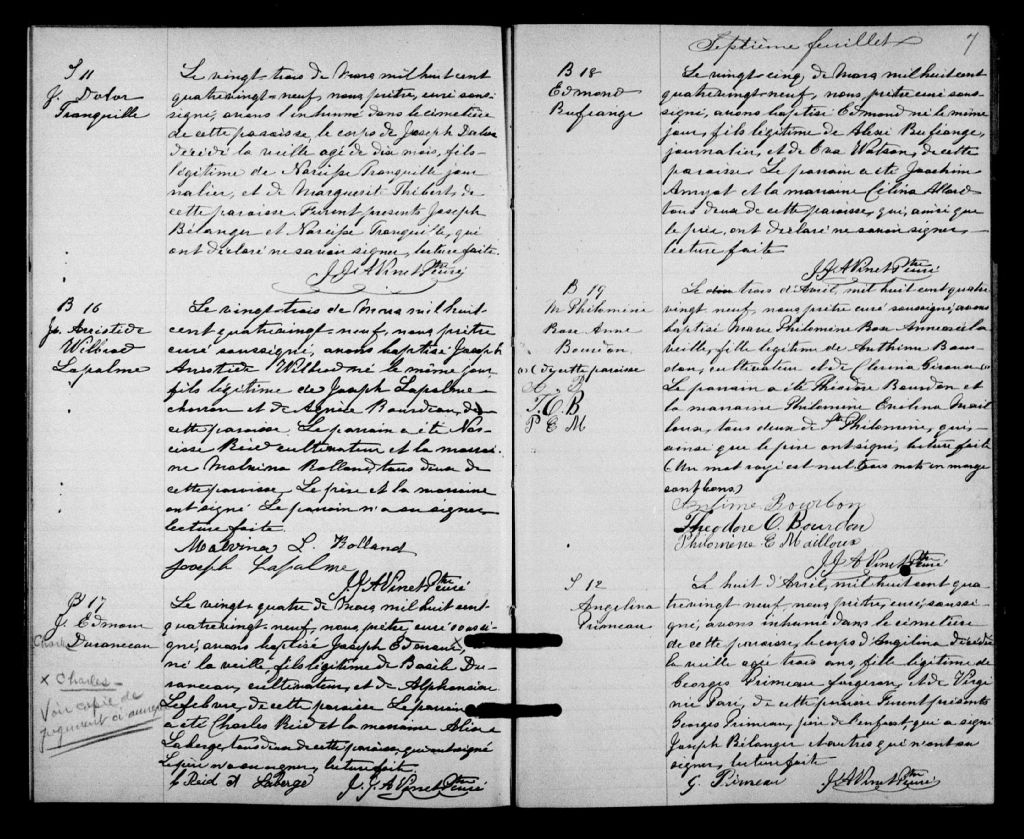 S 11
J. Dolor
Tranquille
Le vingt-trois de Mars mil huit cent
quatrevingt-neuf, nous, prêtre, curé sous-
signé, avons inhumé dans le cimetière
de cette paroisse, le corps de Joseph Dolor
décédé la veille agé de dix mois, fils
légitime de Narcisse Tranquille jour
nalier, et de Marguerite Thibert, de
cette paroisse. Furent présents Joseph
Bélanger et Narcisse Tranquille, qui
ont déclaré ne savoir signer, lecture faite.
J. J. A Vinet Ptre curé
B 16
Js. Aristide
Wilbrod
Lapalme
Le vingt-trois de Mars mil huit
cent quatrevingt-neuf, nous, prêtre
curé soussigné, avons baptisé Joseph
Aristide Wilbrod né le même jour
fils légitime de Joseph Lapalme
charron et de Agnès Bourdeau, de
cette paroisse. Le parrain a été Nar-
cisse Reid cultivateur et la marrai-
ne Malvina Rolland, tous deux de
cette paroisse. Le père et la marraine
ont signé. Le parrain n'a su signer
lecture faite.
Malvina L. Rolland
Joseph Lapalme
J. J. A Vinet Ptre curé
B 17
J. Edmour
Charles Duranceau
x Charles -
Voir copie de
jugement ci-annexé
Le vingt-quatre de Mars mil huit cent
quatrevingt-neuf, nous, prêtre, curé soussi-
gné, avons baptisé Joseph Edmour, x
né la veille, fils légitime de Basile Du-
ranceau, cultivateur, et de Alphonsine
Lefebvre, de cette paroisse. Le parrain
a été Charles Reid et la marraine
Laberge, tous deux de cette paroisse, qui ont signé
Le père n'a su signer, lecture faite
C Reid A Laberge J. J. A Vinet Ptre curé
Septième feuillet 7
B 18
Edmond
Bufiange
Le vingt-cinq de Mars mil huit cent
quatrevingt-neuf, nous, prêtre, curé sous-
signé, avons baptisé Edmond né le même
jour, fils légitime de Alexis Bufiange,
journalier, et de Eva Watson, de cette
paroisse. Le parrain a été Joachim
Amyot et la marraine Célina Allard
tous deux de cette paroisse, qui, ainsi que
le père, ont déclaré ne savoir signer,
lecture faite
J. J. A Vinet Ptre curé
B 19
M. Philomène
Rose Anne
Bourdon
x( de cette paroisse
A. B
T. O. B
P E M
Le trois d'Avril, mil huit cent quatre
vingt neuf, nous, prêtre curé soussigné, avons
baptisé Marie Philomène Rose Anne née la
veille, fille légitime de Anthime Bour-
don, cultivateur et de
Le parrain a été Théodore Bourdon et
la marraine Philomène Emilina Mail
loux, tous deux de Ste Philomène, qui,
ainsi que le père ont signé, lecture faite
(Un mot rayé est nul trois mots en marge
sont bons)
Antime Bourbon
Theodore O. Bourdon
Philomène E Mailloux
J. J. A Vinet Ptre curé
S 12
Angelina
Primeau
Le huit d'Avril, mil huit cent qua
trevingt neuf nous prêtre, curé, soussi-
gné, avons inhumé dans le cimetière
de cette paroisse, le corps d'Angélina décédée
la veille agée trois ans, fille légitime de
Georges Primeau forgeron, et de Virgi
nie Paré, de cette paroisse Furent présents
Georges Primeau, père de l'enfant, qui a signé
Joseph Bélanger et autres qui n'ont su
signer, lecture faite
G. Primeau J. J. A Vinet Ptre curé